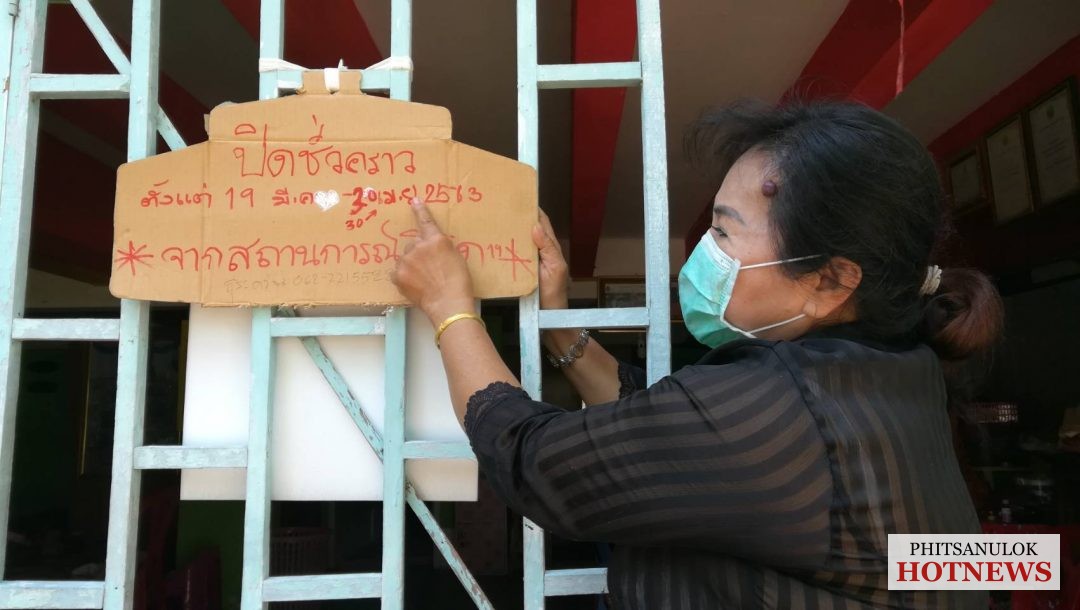 ปิดชั่วคราว
ตั้งแต่ 19 มี.ค - 30 เม.ย 2563
30
* จากสถานการณ์ 19 *
PHITSANULOK
HOTNEWS